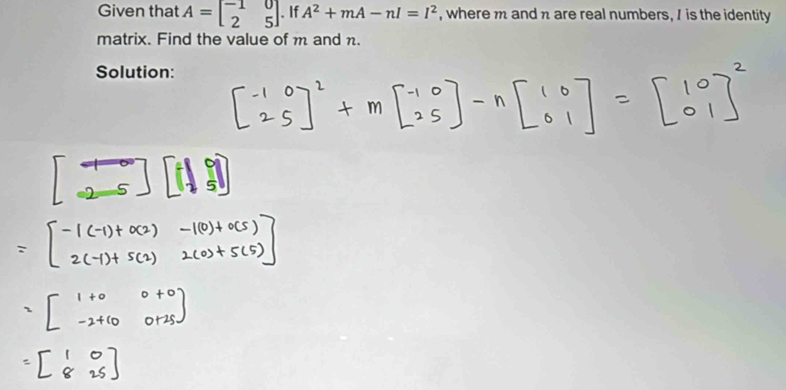 Given that A = [-1 0; 2 5]. If A² + mA − nI = I², where m and n are real numbers, I is the identity
matrix. Find the value of m and n.
Solution:
[-1 0; 2 5]² + m [-1 0; 2 5] − n [1 0; 0 1] = [1 0; 0 1]²
[-1 0; 2 5] [-1 0; 2 5]
= [-1(-1)+0(2) -1(0)+0(5); 2(-1)+5(2) 2(0)+5(5)]
= [1+0 0+0; -2+10 0+25]
= [1 0; 8 25]